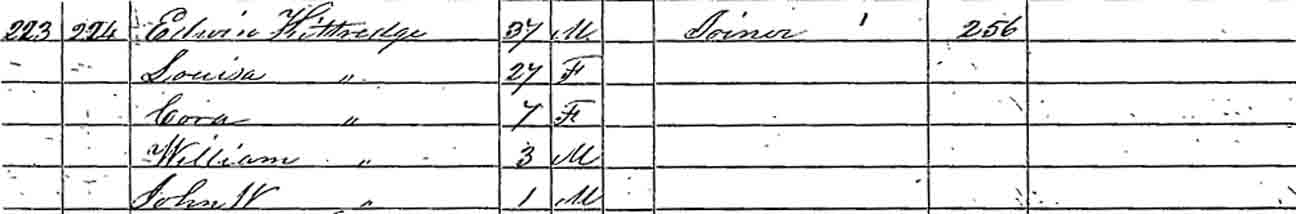 223 224 Edwin Kittredge 37 M Joiner 1 256
" " Louisa " 27 F
" " Cora " 7 F
" " William " 3 M
" " John W " 1 M